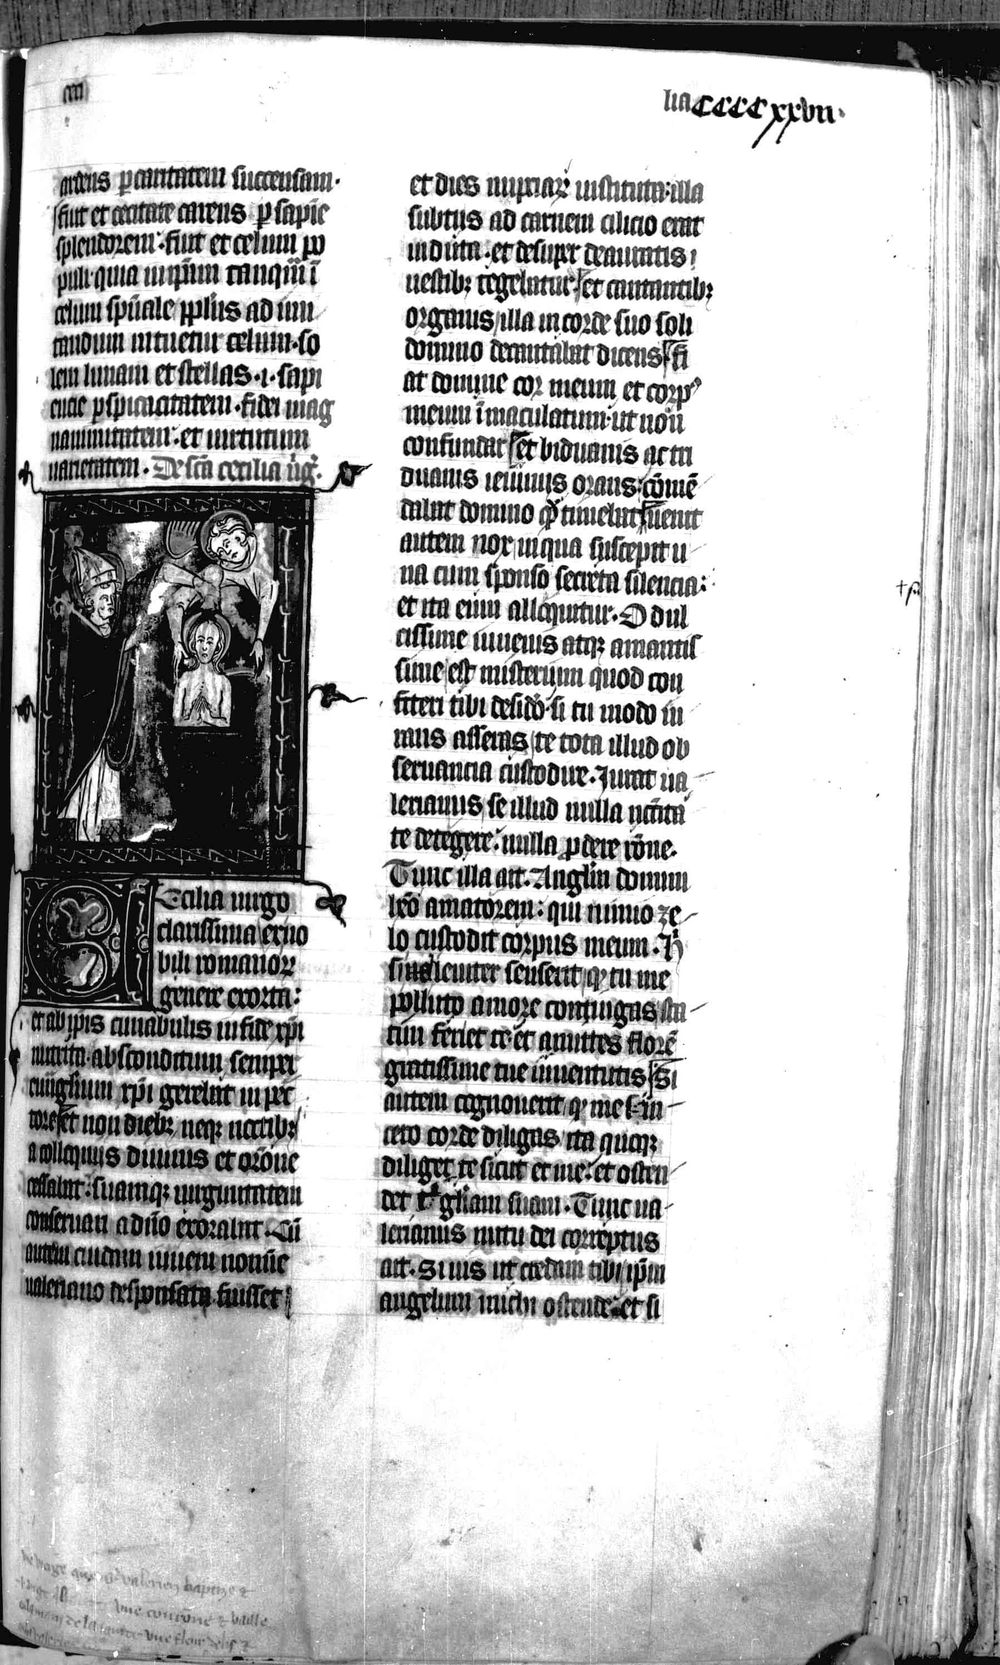 lia CCCCxxvii.
ardens p caritatem succensam.
fuit et cecitate carens p sapie
splendorem. fuit et celum po
puli quia in ipm tanqm i
celum spuale pplus ad imi
tandum intuetur celum. so
lem lunam et stellas .i. sapi
encie pspicacitatem. fidei mag
nanimitatem. et uirtutum
uarietatem. De sca cecilia uig.
Cecilia uirgo
clarissima ex no
bili romanor
genere exorta:
et ab ipis cunabulis in fide xpi
nutrita. absconditum semper
euuglium xpi gerebat in pec
tore. et non dieb neq noctib
a colloquiis diuinis et orone
cessabat. suamq uirginitatem
conseruari a dno exorabat. Cu
autem cuidam iuueni nomie
ualeriano desponsata fuisset
et dies nupciar instituta. illa
subtus ad carnem cilicio erat
induta. et desuper deauratis
uestib tegebatur. et cantantib
organis illa in corde suo soli
domino decantabat dicens. fi
at domine cor meum et corp
meum imaculatum. ut non
confundar. et biduanis ac tri
duanis ieiuniis orans. come
dabat domino q timebat. uenit
autem nox in qua suscepit u
na cum sponso secreta silencia:
et ita eum alloquitur. O dul
cissime iuuenis atq amantis
sime est misterium quod con
fiteri tibi desido. si tu modo iu
ratus asseras te tota illud ob
seruancia custodire. Jurat ua
lerianus se illud nulla nccita
te detegere. nulla pdere rone.
Tunc illa ait. Anglm domini
heo amatorem: qui nimio ze
lo custodit corpus meum. H
si uel leuiter senserit q tu me
polluto amore contingas sta
tim feriet te. et amittes flore
gratissime tue iuuentutis. Si
autem cognouerit q me sin
cero corde diligas ita quoq
diliget te sicut et me. et osten
det t gliam suam. Tunc ua
lerianus nutu dei correptus
ait. Si uis ut credam tibi ipm
angelum michi ostende. et si